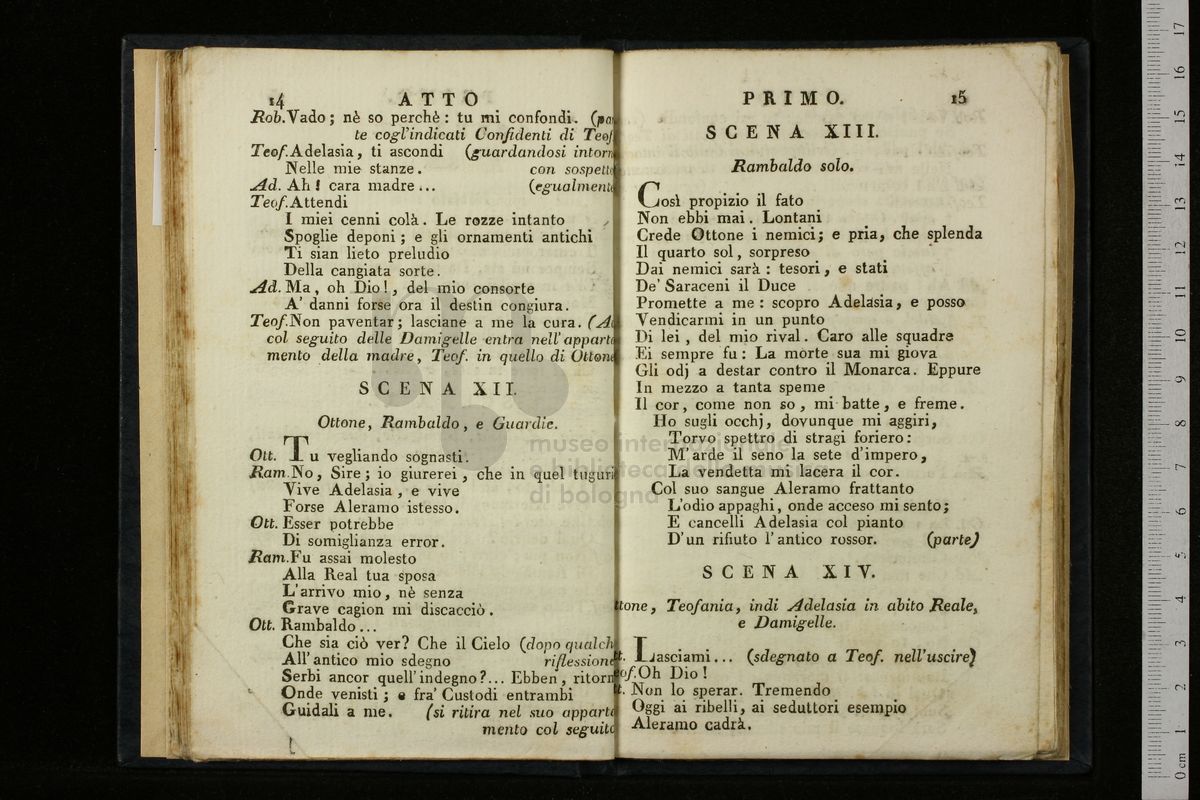 14 ATTO
Rob. Vado; nè so perchè: tu mi confondi. (par
te cogl'indicati Confidenti di Teof.
Teof. Adelasia, ti ascondi (guardandosi intorn
Nelle mie stanze. con sospetto
Ad. Ah! cara madre... (egualmente
Teof. Attendi
I miei cenni colà. Le rozze intanto
Spoglie deponi; e gli ornamenti antichi
Ti sian lieto preludio
Della cangiata sorte.
Ad. Ma, oh Dio!, del mio consorte
A' danni forse ora il destin congiura.
Teof. Non paventar; lasciane a me la cura. (Ad
col seguito delle Damigelle entra nell'apparta
mento della madre, Teof. in quello di Ottone
SCENA XII.
Ottone, Rambaldo, e Guardie.
Ott. Tu vegliando sognasti.
Ram. No, Sire; io giurerei, che in quel tuguri
Vive Adelasia, e vive
Forse Aleramo istesso.
Ott. Esser potrebbe
Di somiglianza error.
Ram. Fu assai molesto
Alla Real tua sposa
L'arrivo mio, nè senza
Grave cagion mi discacciò.
Ott. Rambaldo...
Che sia ciò ver? Che il Cielo (dopo qualch
All'antico mio sdegno riflessione
Serbi ancor quell'indegno?... Ebben, ritorn
Onde venisti; e fra' Custodi entrambi
Guidali a me. (si ritira nel suo apparta
mento col seguito
PRIMO. 15
SCENA XIII.
Rambaldo solo.
Così propizio il fato
Non ebbi mai. Lontani
Crede Ottone i nemici; e pria, che splenda
Il quarto sol, sorpreso
Dai nemici sarà: tesori, e stati
De' Saraceni il Duce
Promette a me: scopro Adelasia, e posso
Vendicarmi in un punto
Di lei, del mio rival. Caro alle squadre
Ei sempre fu: La morte sua mi giova
Gli odj a destar contro il Monarca. Eppure
In mezzo a tanta speme
Il cor, come non so, mi batte, e freme.
Ho sugli occhj, dovunque mi aggiri,
Torvo spettro di stragi foriero:
M'arde il seno la sete d'impero,
La vendetta mi lacera il cor.
Col suo sangue Aleramo frattanto
L'odio appaghi, onde acceso mi sento;
E cancelli Adelasia col pianto
D'un rifiuto l'antico rossor. (parte)
SCENA XIV.
ttone, Teofania, indi Adelasia in abito Reale,
e Damigelle.
tt. Lasciami... (sdegnato a Teof. nell'uscire)
eof. Oh Dio!
tt. Non lo sperar. Tremendo
Oggi ai ribelli, ai seduttori esempio
Aleramo cadrà.
museo internazionale
e biblioteca della musica
di bologna
0 cm 1 2 3 4 5 6 7 8 9 10 11 12 13 14 15 16 17